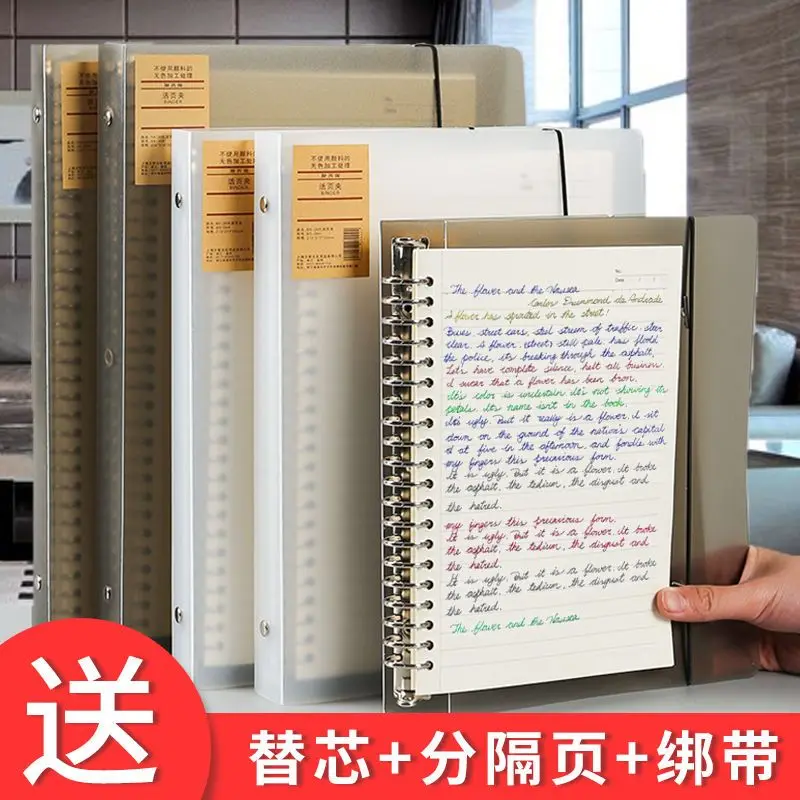 不使用颜料的
无色加工处理
活页夹
BINDER
不使用颜料的
无色加工处理
活页夹
BINDER
不使用颜料的
无色加工处理
活页夹
BINDER
No.
Date
The flower and the Nausea
Carlos Drummond de Andrade
A flower has sprouted in the street!
Buses, street cars, steel stream of traffic, steer
clear. A flower, still pale, has
the police, it's breaking through the asphalt,
Let's have complete silence, halt all business.
I swear that a flower has been bron.
It's color is uncertain. It's not showing its
petals. It's name isn't in the book.
It's ugly. But it really is a flower. I sit
down on the ground of the nation's capital
at five in the afternoon, and fondle with
my fingers this precarious form.
It is ugly. But it is a flower. It broke
the asphalt, the tedium, the disgust and
the hatred.
my fingers this precarious form.
It is ugly. But it is a flower. It broke
the asphalt, the tedium, the disgust and
the hatred.
It is ugly. But it is a flower. It broke
the asphalt, the tedium, the disgust and
the hatred.
The flower and the Nausea
送
替芯+分隔页+绑带